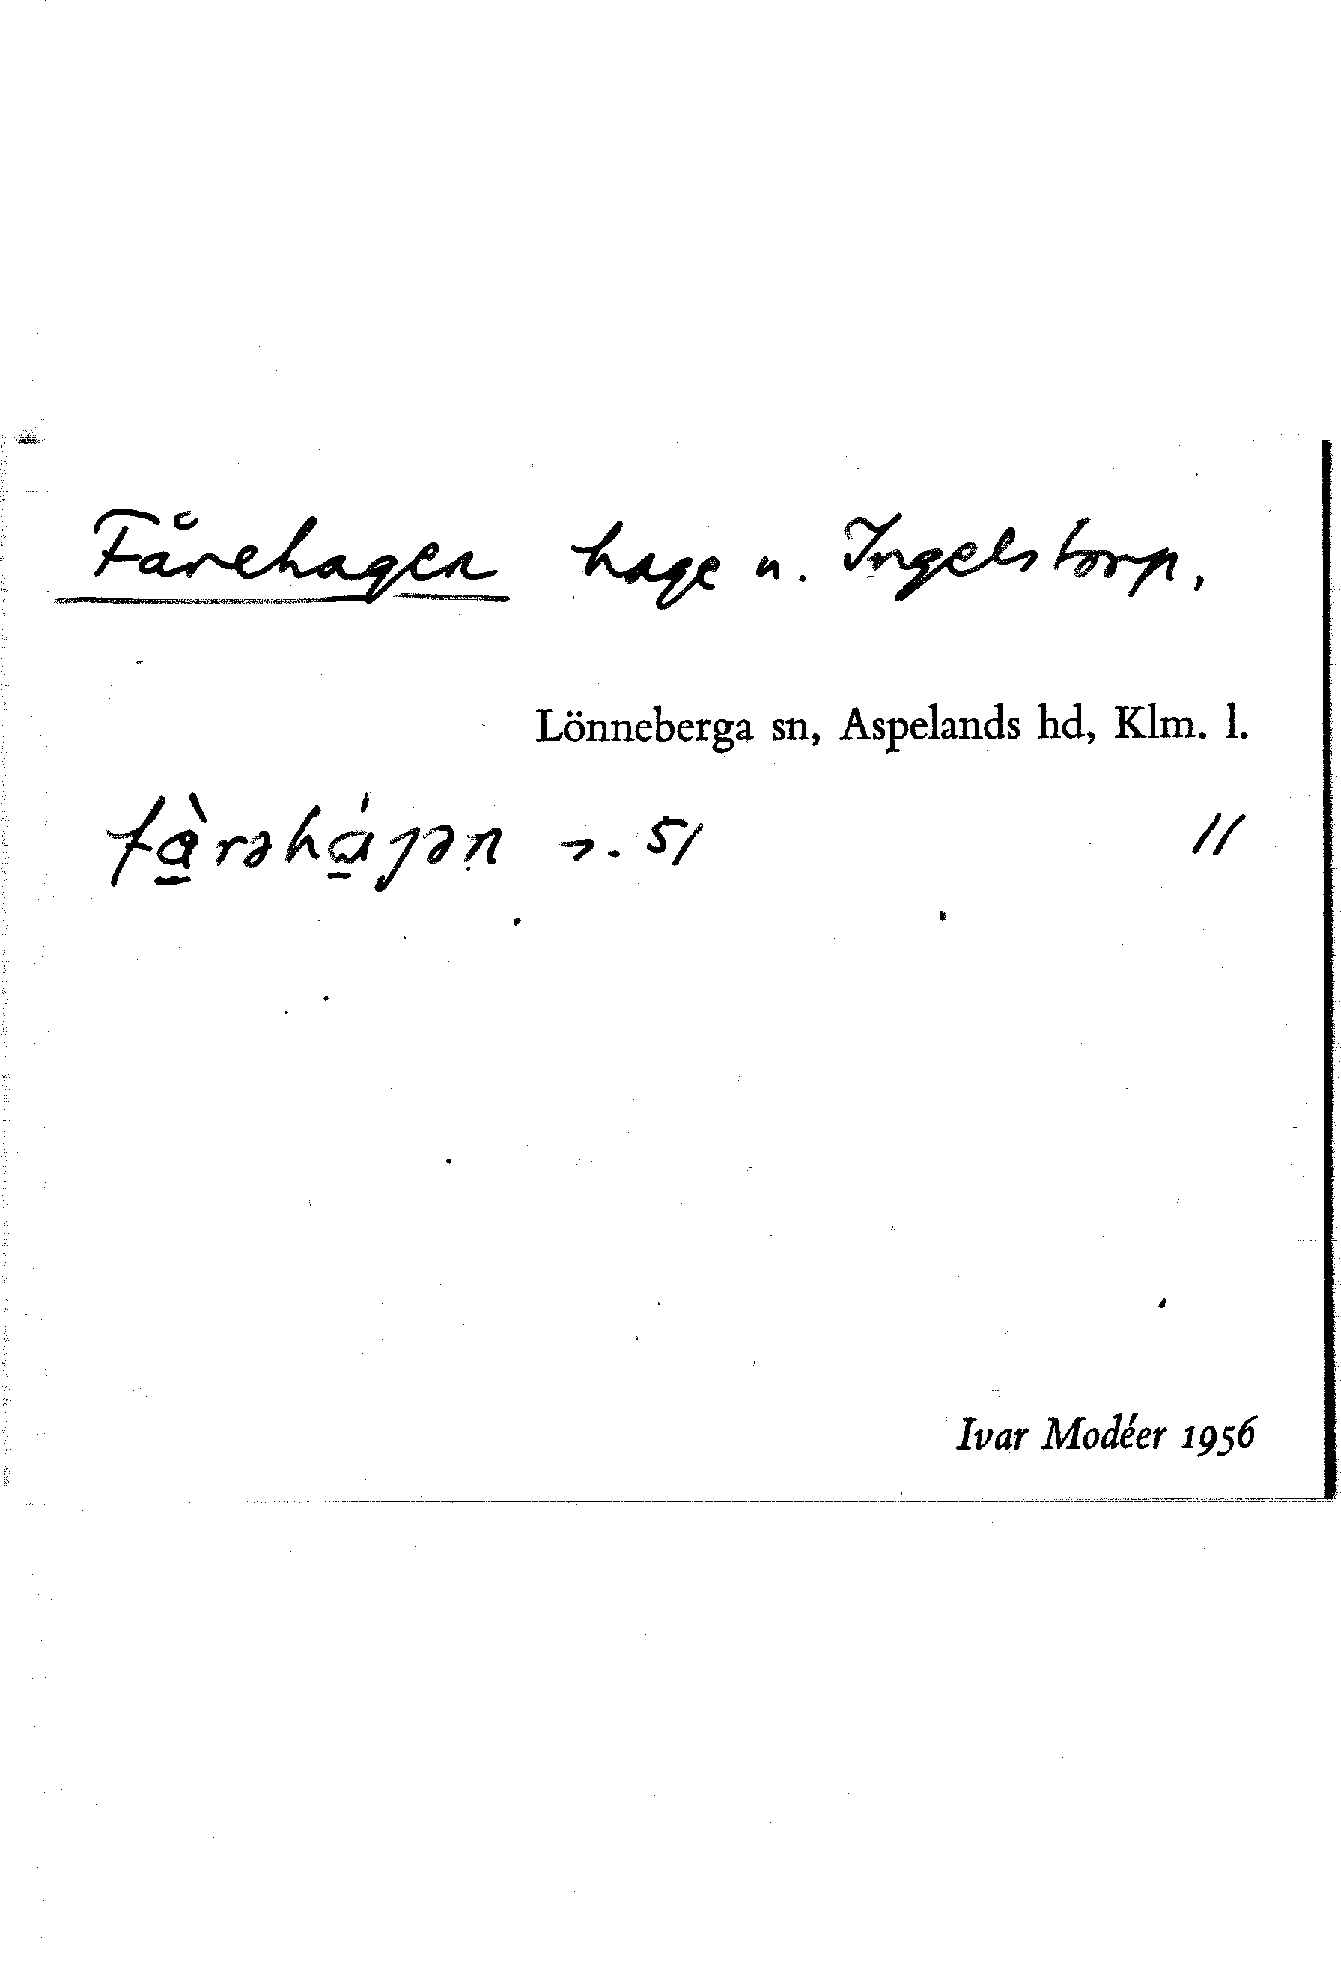 Fårehagen hage u. Ingelstorp,
Lönneberga sn, Aspelands hd, Klm. l.
fɑ̱̀rəhɑ̱́gən 51 11
Ivar Modéer 1956